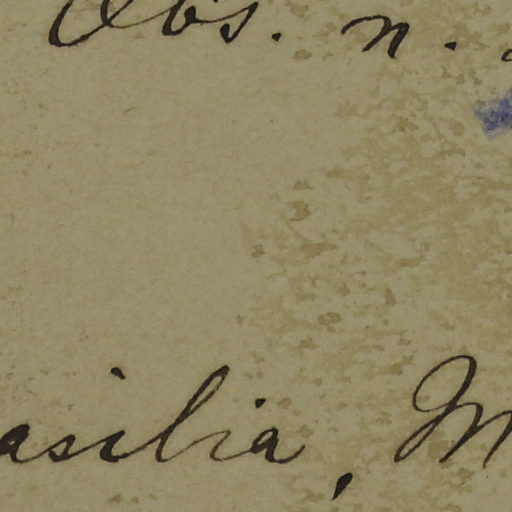 Obs. n.
asilia, M